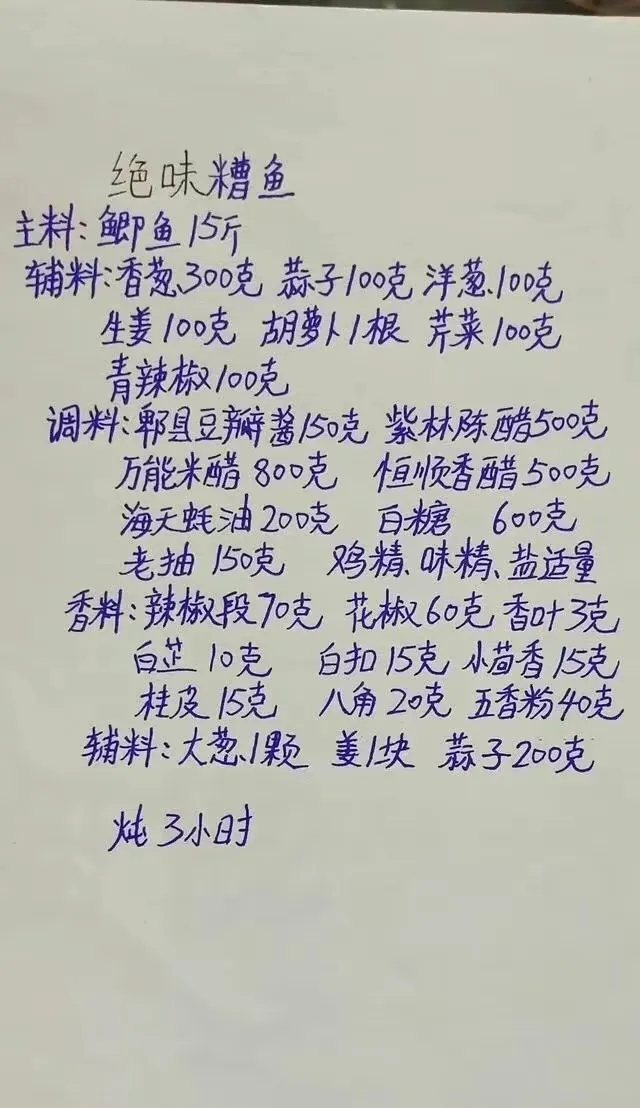 绝味糟鱼
主料:鲫鱼15斤
辅料:香葱300克 蒜子100克 洋葱100克
生姜100克 胡萝卜1根 芹菜100克
青辣椒100克
调料:郫县豆瓣酱150克 紫林陈醋500克
万能米醋800克 恒顺香醋500克
海天蚝油200克 白糖 600克
老抽150克 鸡精、味精、盐适量
香料:辣椒段70克 花椒60克 香叶3克
白芷10克 白扣15克 小茴香15克
桂皮15克 八角20克 五香粉40克
辅料:大葱1颗 姜1块 蒜子200克
炖3小时